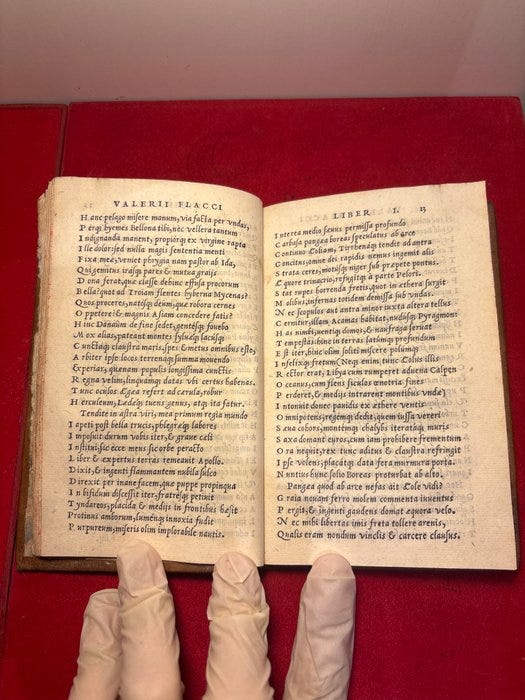 VALERII FLACCI
Hanc pelago misere manum, via facta per vndas,
Perq́; hyemes Bellona tibi, nec vellera tantum
Indignanda manent, propiorq́; ex virgine rapta
Ille dolor: sed nulla magis sententia menti
Fixa mex, veniet phrygia nam pastor ab Ida,
Qui gemitus irasq́; pares & mutua graijs
Dona ferat, quæ classe dehinc effusa procorum
Bella? quot ad Troiam flentes hyberna Mycenas?
Quos proceres, natosq́; deûm, quæ robora cernes
Oppetere? & magnis Asiam concedere fatis?
Hinc Danaûm de fine sedet, gentesq́; fouebo
Mox alias, pateant montes syluæq́; lacusq́;
Cunctaq́; claustra maris, spes & metus omnibus esto,
Arbiter ipse locos terrenaq́; summa mouendo
Experiar, quænam populis longissima cunctis
Regna velim, linquamq́; datas vbi certus habenas.
Tunc oculos Ægea refert ad cærula, robur
Herculeum, Ledæq́; tuens genus, atq́; ita fatur,
Tendite in astra viri, mea primum regia mundo
Iapeti post bella trucis, phlegreq́; labores
Imposuit, durum vobis iter, & graue cæli
Institui, sic ecce meus sic orbe peracto
Liber & expertus terras remeauit Apollo.
Dixit, & ingenti flammantem nubila sulco
Direxit per inane facem, quæ puppe propinqua
In bifidum discessit iter, fratresq́; petiuit
Tyndareos, placida & medijs in frontibus hæsit
Protinus amborum, lumenq́; innoxia fudit
Purpureum, miseris olim implorabile nautis.
LIBER I. 13
Interea medio sæuus permissa profundo
Carbasa pangea boreas speculatus ab arce
Continuo Æoliam, Tirrhenaq́; tendit ad antra
Concitus, omne dei rapidis nemus ingemit alis
Strata ceres, motusq́; niger sub præpete pontus.
Æquore trinacrio, refugiq́; a parte Pelori
Stat rupes horrenda fretis, quot in æthera surgit
Molibus, infernas totidem demissa sub vndas.
Nec scopulos aut antra minor iuxta altera tellus
Cernitur, illam Acamas habitat, nudusq́; Pyragmon
Has nimbi, ventiq́; domos, & naufraga seruat
Tempestas: hinc in terras latumq́; profundum
Est iter, hinc olim soliti miscere polumq́;
Infelixq́; fretum (Neq; enim tunc Æolus illis
Rector erat, Libya cum rumperet aduena Calpen
Oceanus, cum flens siculos œnotria fines
Perderet, & medijs intrarent montibus vndæ)
Intonuit donec pauidis ex æthere ventis
Omnipotens, regemq́; dedit, quem iussa vereri
Sæua cohors, monteq́; chalybs iterataq́; muris
Saxa domant euros, cum iam prohibere frementum
Ora nequit, rex tunc aditus & claustra refringit
Ipse volens, placatq́; data fera murmura porta.
Nuntius hunc solio Boreas proturbat ab alto.
Pangea quod ab arce nefas ait Æole vidi?
Graia nouam ferro molem commenta iuuentus
Pergit, & ingenti gaudens domat æquora velo.
Nec mihi libertas imis freta tollere arenis,
Qualis eram nondum vinclis & carcere clausus.